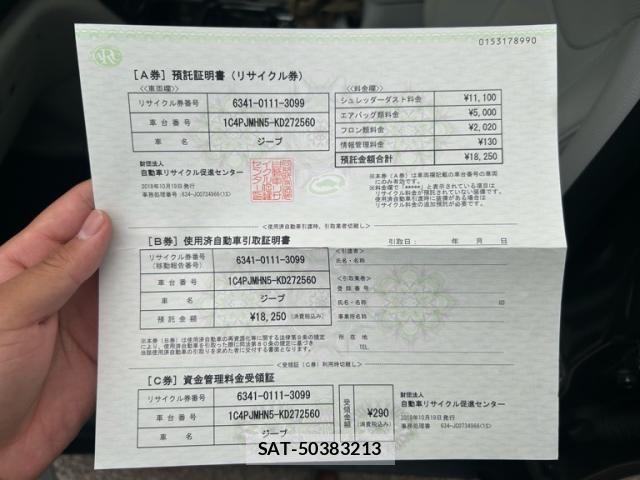 0153178990
ARC
[A券] 預託証明書（リサイクル券）
<<車両欄>>
リサイクル券番号 6341-0111-3099
車台番号 1C4PJMHN5-KD272560
車名 ジープ
<<料金欄>>
シュレッダーダスト料金 ¥11,100
エアバッグ類料金 ¥5,000
フロン類料金 ¥2,020
情報管理料金 ¥130
預託金額合計 ¥18,250
財団法人
自動車リサイクル促進センター
2019年10月19日発行
事務処理番号 :634-J00734966(1S)
※本券（A券）は車両欄記載の車台番号の車両
にのみ有効です。
※料金欄で「*****」と表示されている項目は
リサイクル料金が預託されていない装備です。
使用済自動車引渡時に装備がある場合は
リサイクル料金の追加預託が必要です。
<使用済自動車引渡時、引取業者切離し>
[B券] 使用済自動車引取証明書
引取日： 年 月 日
リサイクル券番号
(移動報告番号) 6341-0111-3099
車台番号 1C4PJMHN5-KD272560
車名 ジープ
預託金額 ¥18,250 (消費税込み)
<引渡者>
氏名・名称
<引取業者>
登録番号
氏名・名称 印
事業所名
所在地
TEL
※本券（B券）は使用済自動車の再資源化等に関する法律第9条の規定に
よって、使用済自動車を引取った際に同法第80条の規定に基づき
当該使用済自動車の引取りを求めた者に交付する書面となります。
<受領証（C券）利用時切離し>
[C券] 資金管理料金受領証
リサイクル券番号 6341-0111-3099
車台番号 1C4PJMHN5-KD272560
車名 ジープ
受領金額 ¥290
(消費税込み)
財団法人
自動車リサイクル促進センター
2019年10月19日発行
事務処理番号 :634-J00734966(1S)
SAT-50383213